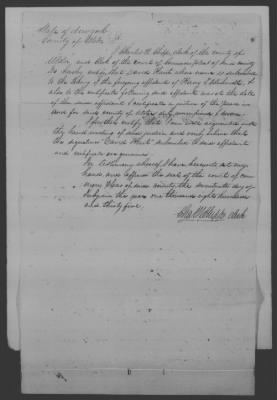 State of New York
County of Ulster ss
I Charles W. Chipp clerk of the county of
Ulster and Clerk of the court of common pleas of said county
do hereby certify that David whose name is subscribed
to the taking of the foregoing affidavit of Henry and
also to the certificate following said affidavit was at the date
of the said affidavit & certificate a justice of the peace in
and for said county of Ulster duly commissioned & sworn
I further certify that I am well acquainted with
the hand writing of said justice and verily believe that
the signature David subscribed to said affidavit
and certificate are genuine
In testimony whereof I have hereunto set my
hand and affixed the seal of the court of com
mon pleas of said county the day of
in the year one thousand eight hundred
and thirty five
Chas W Chipp Clerk